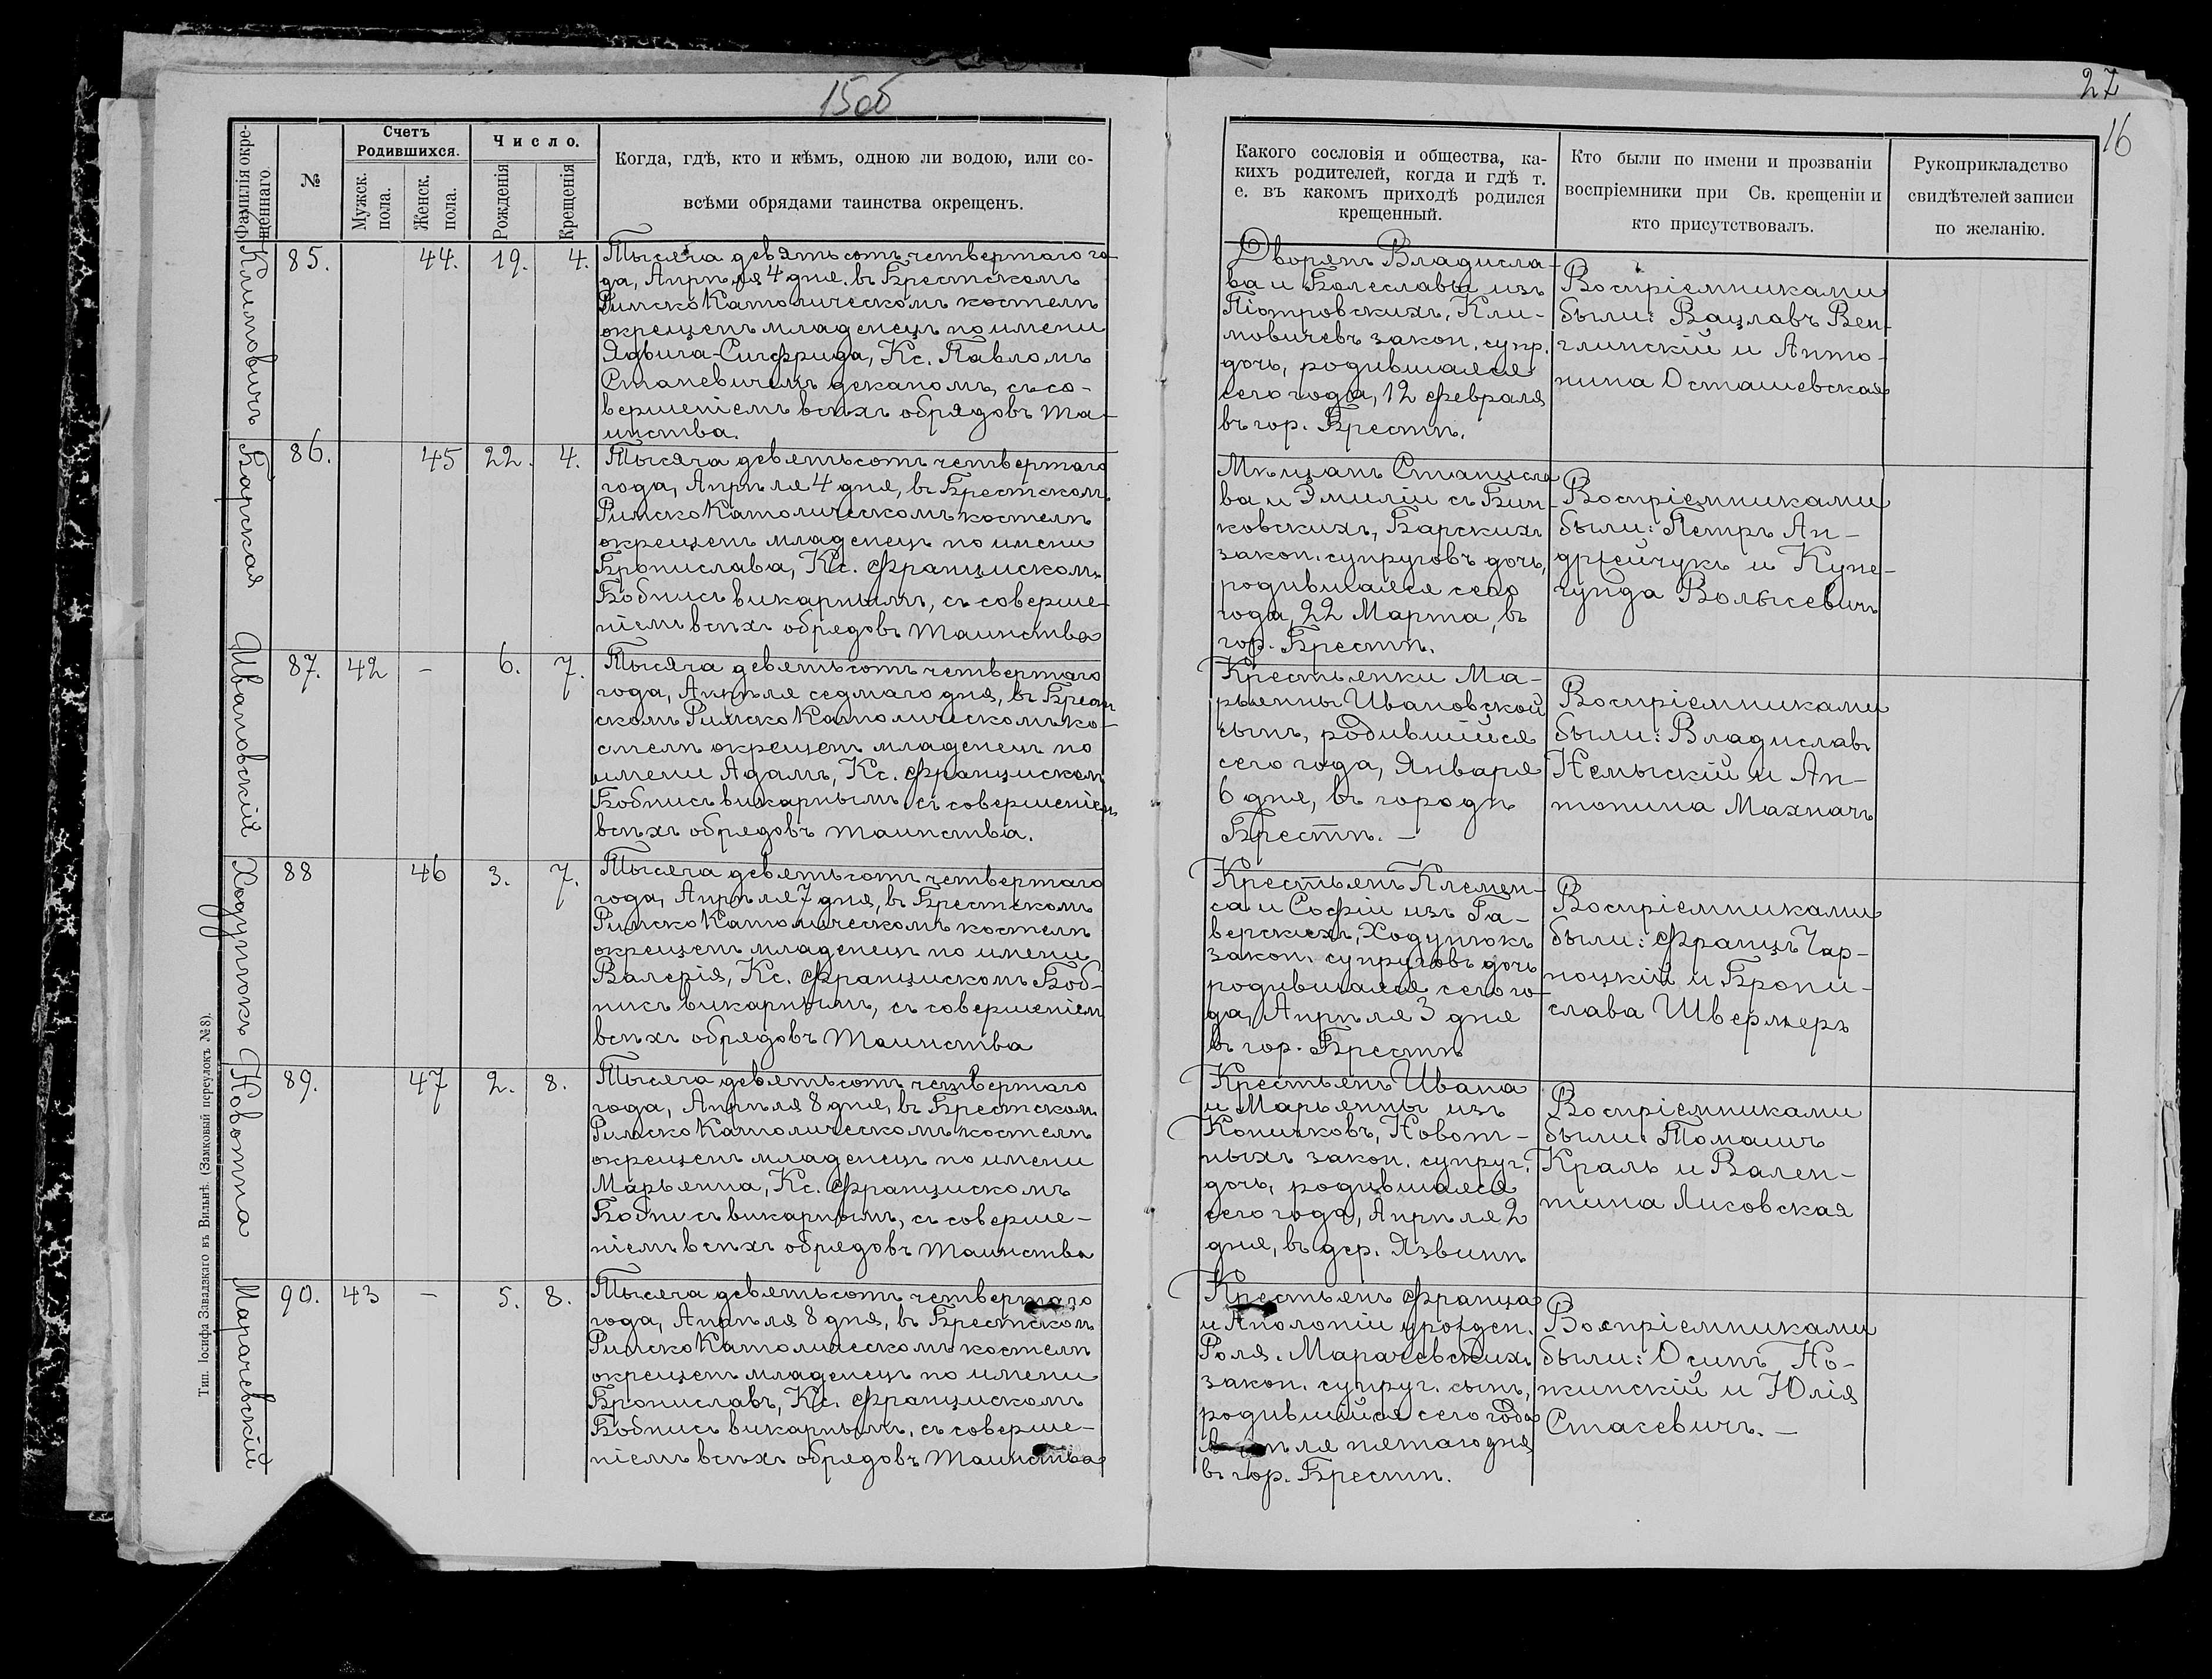 15об
27
16
Фамилія окре-
щеннаго.
№
Счетъ
Родившихся.
Мужск.
пола.
Женск.
пола.
Число.
Рожденія
Крещенія
Когда, гдѣ, кто и кѣмъ, одною ли водою, или со-
всѣми обрядами таинства окрещенъ.
Какого сословія и общества, ка-
кихъ родителей, когда и гдѣ т.
е. въ какомъ приходѣ родился
крещенный.
Кто были по имени и прозванію
воспріемники при Св. крещеніи и
кто присутствовалъ.
Рукоприкладство
свидѣтелей записи
по желанію.
Климовичъ
85. 44. 19. 4.
Тысяча девятьсотъ четвертаго го-
да, Апрѣля 4 дня, въ Брестскомъ
Римско Католическомъ костелѣ
окрещенъ младенецъ по имени
Ядвига-Сигфрида, Кс. Павломъ
Станевичемъ деканомъ, съ со-
вершеніемъ всѣхъ обрядовъ та-
инства.
Дворянъ Владисла-
ва и Болеславы изъ
Піотровскихъ, Кли-
мовичевъ закон. супр.
дочь, родившаяся
сего года, 12 февраля
въ гор. Брестѣ.
Воспріемниками
были: Вацлавъ Вен-
глинскій и Анто-
нина Осташевская
Барская
86. 45 22. 4.
Тысяча девятьсотъ четвертаго
года, Апрѣля 4 дня, въ Брестскомъ
Римско Католическомъ костелѣ
окрещенъ младенецъ по имени
Бронислава, Кс. Францискомъ
Бобнисъ викарнымъ, съ соверше-
ніемъ всѣхъ обрядовъ таинства
Мѣщанъ Станисла
ва и Эмиліи съ Бин-
ковскихъ, Барскихъ
закон. супруговъ дочь,
родившаяся сего
года, 22 Марта, въ
гор. Брестѣ.
Воспріемниками
были: Петръ Ан-
дрейчукъ и Куне-
гунда Волысевичъ
Ивановскій
87. 42 - 6. 7.
Тысяча девятьсотъ четвертаго
года, Апрѣля седмаго дня, въ Брест
скомъ Римско Католическомъ ко-
стелѣ окрещенъ младенецъ по
имени Адамъ, Кс. Францискомъ
Бобнисъ викарнымъ съ совершеніем
всѣхъ обрядовъ таинства.
Крестьянки Ма-
рьянны Ивановской
сынъ, родившійся
сего года, Января
6 дня, въ городѣ
Брестѣ. -
Воспріемниками
были: Владиславъ
Немыскій и Ан-
тонина Махначъ
Ходунюкъ
88 46 3. 7.
Тысяча девятьсотъ четвертаго
года, Апрѣля 7 дня, въ Брестскомъ
Римско Католическомъ костелѣ
окрещенъ младенецъ по имени
Валерія, Кс. Францискомъ Боб-
нисъ викарнымъ, съ совершеніем
всѣхъ обрядовъ таинства
Крестьянъ Клемен-
са и Софіи изъ Га-
верскихъ, Ходунюкъ
закон. супруговъ дочь
родившаяся сего го-
да, Апрѣля 3 дня
въ гор. Брестѣ
Воспріемниками
были: Францъ Чар-
ноцкій и Брони-
слава Швермеръ
Новотна
89. 47 2. 8.
Тысяча девятьсотъ четвертаго
года, Апрѣля 8 дня, въ Брестском
Римско Католическомъ костелѣ
окрещенъ младенецъ по имени
Марьянна, Кс. Францискомъ
Бобнисъ викарнымъ, съ соверше-
ніемъ всѣхъ обрядовъ таинства
Крестьянъ Ивана
и Марьянны изъ
Коничковъ, Новот-
ныхъ закон. супруг.
дочь, родившаяся
сего года, Апрѣля 2
дня, въ дер. Язвинѣ
Воспріемниками
были: Томашъ
Краль и Вален-
тина Лисовская
Марачевскій
90. 43 - 5. 8.
Тысяча девятьсотъ четвертаго
года, Апрѣля 8 дня, въ Брестском
Римско Католическомъ костелѣ
окрещенъ младенецъ по имени
Брониславъ, Кс. Францискомъ
Бобнисъ викарнымъ, съ соверше-
ніемъ всѣхъ обрядовъ таинства
Крестьянъ Франца
и Аполоніи урожден.
Роля. Марачевскихъ
закон. супруг. сынъ,
родившійся сего года
Апрѣля пятаго дня
въ гор. Брестѣ.
Воспріемниками
были: Осипъ Но-
жинскій и Юлія
Стасевичъ. -
Тип. Іосифа Завадзкаго въ Вильнѣ. (Замковый переулокъ № 8).